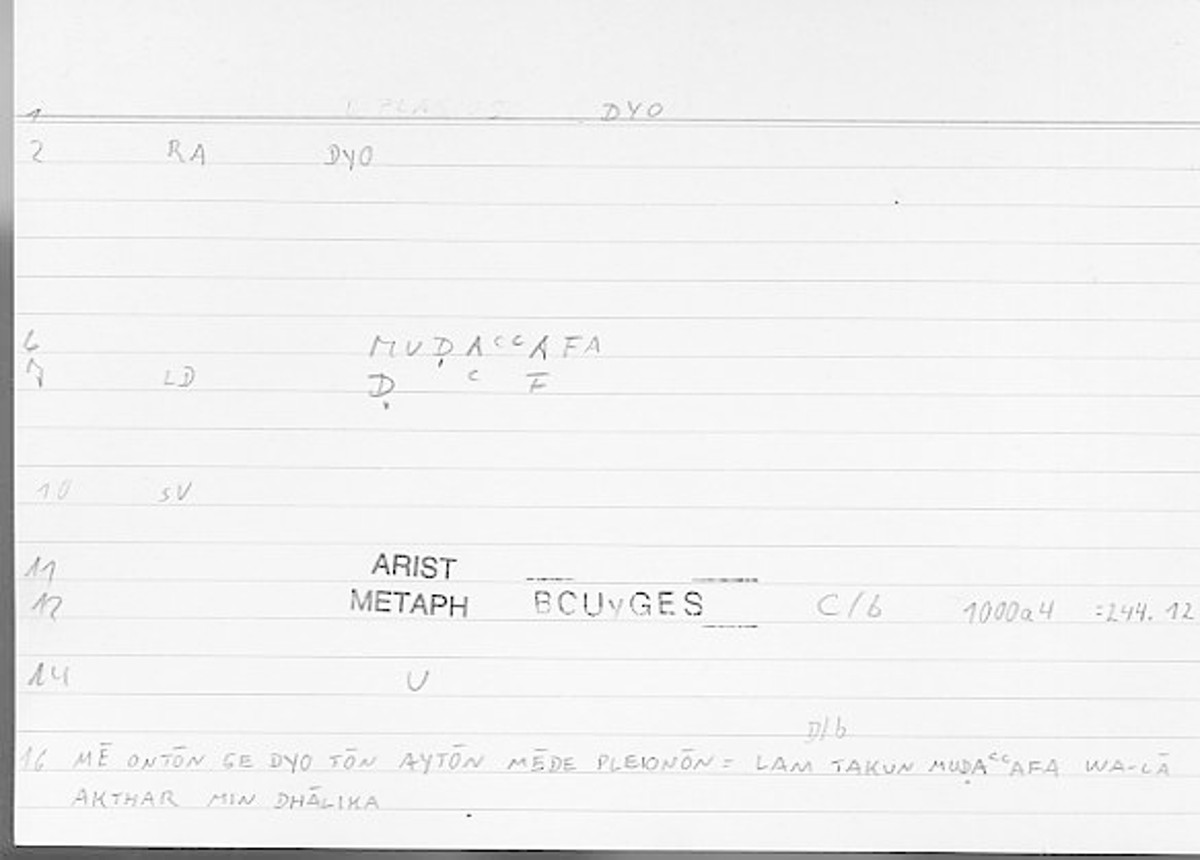 1 DYO
2 RA DYO
6 MUḌAᶜᶜAFA
7 LD Ḍ ᶜ F
10 sV
11 ARIST
12 METAPH BCUyGES C/b 1000a4 =244.12
14 U
D/b
16 MĒ ONTŌN GE DYO TŌN AYTŌN MĒDE PLEIONŌN = LAM TAKUN MUḌAᶜᶜAFA WA-LĀ
AKTHAR MIN DHĀLIKA